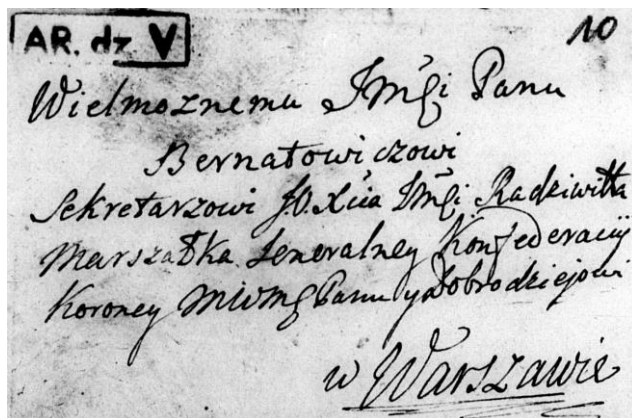 AR. dz V
10
Wielmoznemu JMći Panu
Bernatowiczowi
Sekretarzowi J.O. Xcia JMći Radziwiłła
Marszałka Jeneralney Konfederacij
Koroney MWMP Panu y Dobrodziejowi
w Warszawie